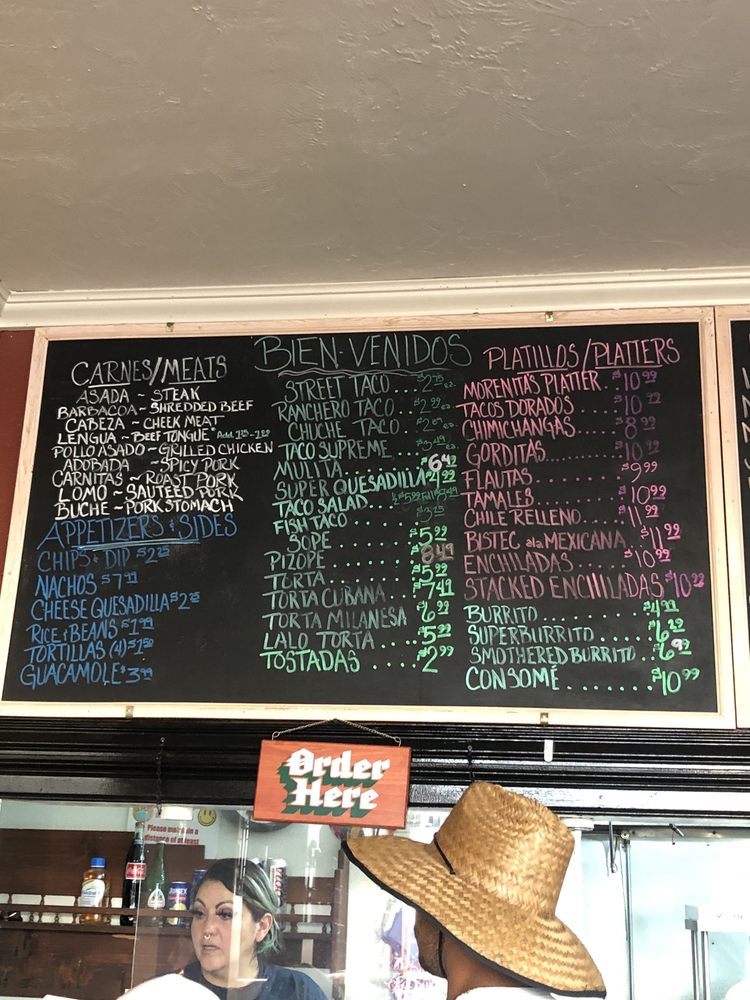 CARNES/MEATS
ASADA ~ STEAK
BARBACOA ~ SHREDDED BEEF
CABEZA ~ CHEEK MEAT
LENGUA ~ BEEF TONGUE Add
POLLO ASADO ~ GRILLED CHICKEN
ADOBADA ~ SPICY PORK
CARNITAS ~ ROAST PORK
LOMO ~ SAUTEED PORK
BUCHE ~ PORK STOMACH
APPETIZERS & SIDES
CHIPS & DIP $2.25
NACHOS $7.99
CHEESE QUESADILLA $2.75
RICE & BEANS $1.99
TORTILLAS (4) $1.50
GUACAMOLE $3.99
BIEN-VENIDOS
STREET TACO... $2.75 ea.
RANCHERO TACO... $2.99 ea.
CHUCHE TACO... ea.
TACO SUPREME... $3.49 ea.
MULITA... 6.49
SUPER QUESADILLA $4.99
TACO SALAD...
FISH TACO... $3.75
SOPE... $5.99
PIZOPE... 8.49
TORTA... $5.99
TORTA CUBANA... $7.49
TORTA MILANESA $6.99
LALO TORTA... $5.99
TOSTADAS.... $2.99
PLATILLOS/PLATTERS
MORENITAS PLATTER. $10.99
TACOS DORADOS.... $10.99
CHIMICHANGAS.... $8.99
GORDITAS...... $10.99
FLAUTAS...... $9.99
TAMALES...... $10.99
CHILE RELLENO..... $11.99
BISTEC ala MEXICANA. $11.99
ENCHILADAS.... $10.99
STACKED ENCHILADAS $10.99
BURRITO......... $4.99
SUPERBURRITO..... $6.29
SMOTHERED BURRITO.. $6.99
CONSOMÉ....... $10.99
Order
Here
Please maintain a
distance of at least